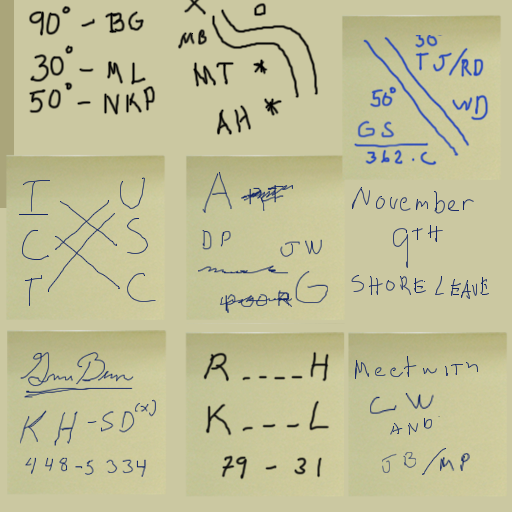 90° - BG
30° - ML
50° - NKP
X O
MB
MT *
AH *
30°
TJ/RD
50° WD
GS
362.C
T U
C S
T C
A
DP JW
G
November
9TH
SHORE LEAVE
KH-SD(X)
448-5334
R____H
K___L
79 - 31
Meet with
CW
AND
JB/MP